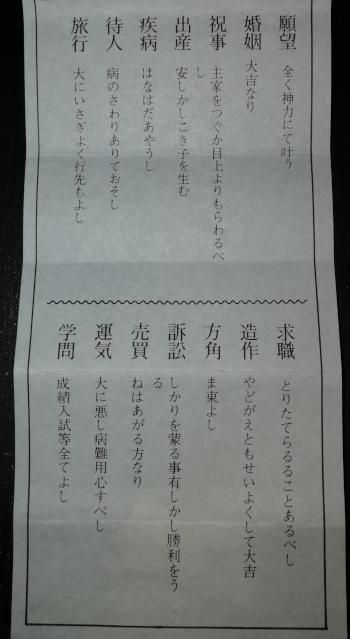 願望 全く神力にて叶う
婚姻 大吉なり
祝事 主家をつぐか目上よりもらわるべ
し
出産 安しかしこき子を生む
疾病 はなはだあやうし
待人 病のさわりありておそし
旅行 大にいさぎよく行先もよし
求職 とりたてらるることあるべし
造作 やどがえともせいよくして大吉
方角 ま東よし
訴訟 しかりを蒙る事有しかし勝利をう
る
売買 ねはあがる方なり
運気 大に悪し病難用心すべし
学問 成績入試等全てよし